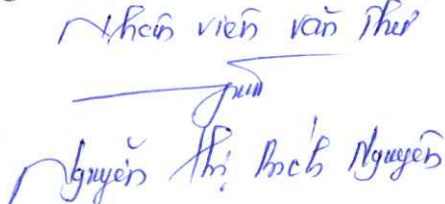 Nhân viên văn thư
Nguyễn Thị Bích Nguyên